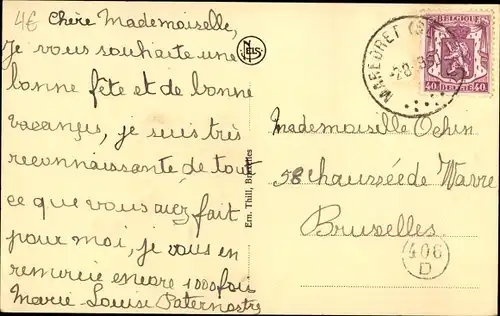 4€ Chère Mademoiselle,
Je vous souhaite une
bonne fête et de bonne
vacances, je suis très
reconnaissante de tout
ce que vous avez fait
pour moi, je vous en
remercie encore 1000 fois
Marie Louise Paternostre
NELS
Ern. Thill, Bruxelles
MAREDRET
BELGIQUE
40 BELGIE 40
Mademoiselle Ochin
58 chaussée de Wavre
Bruxelles
406
D